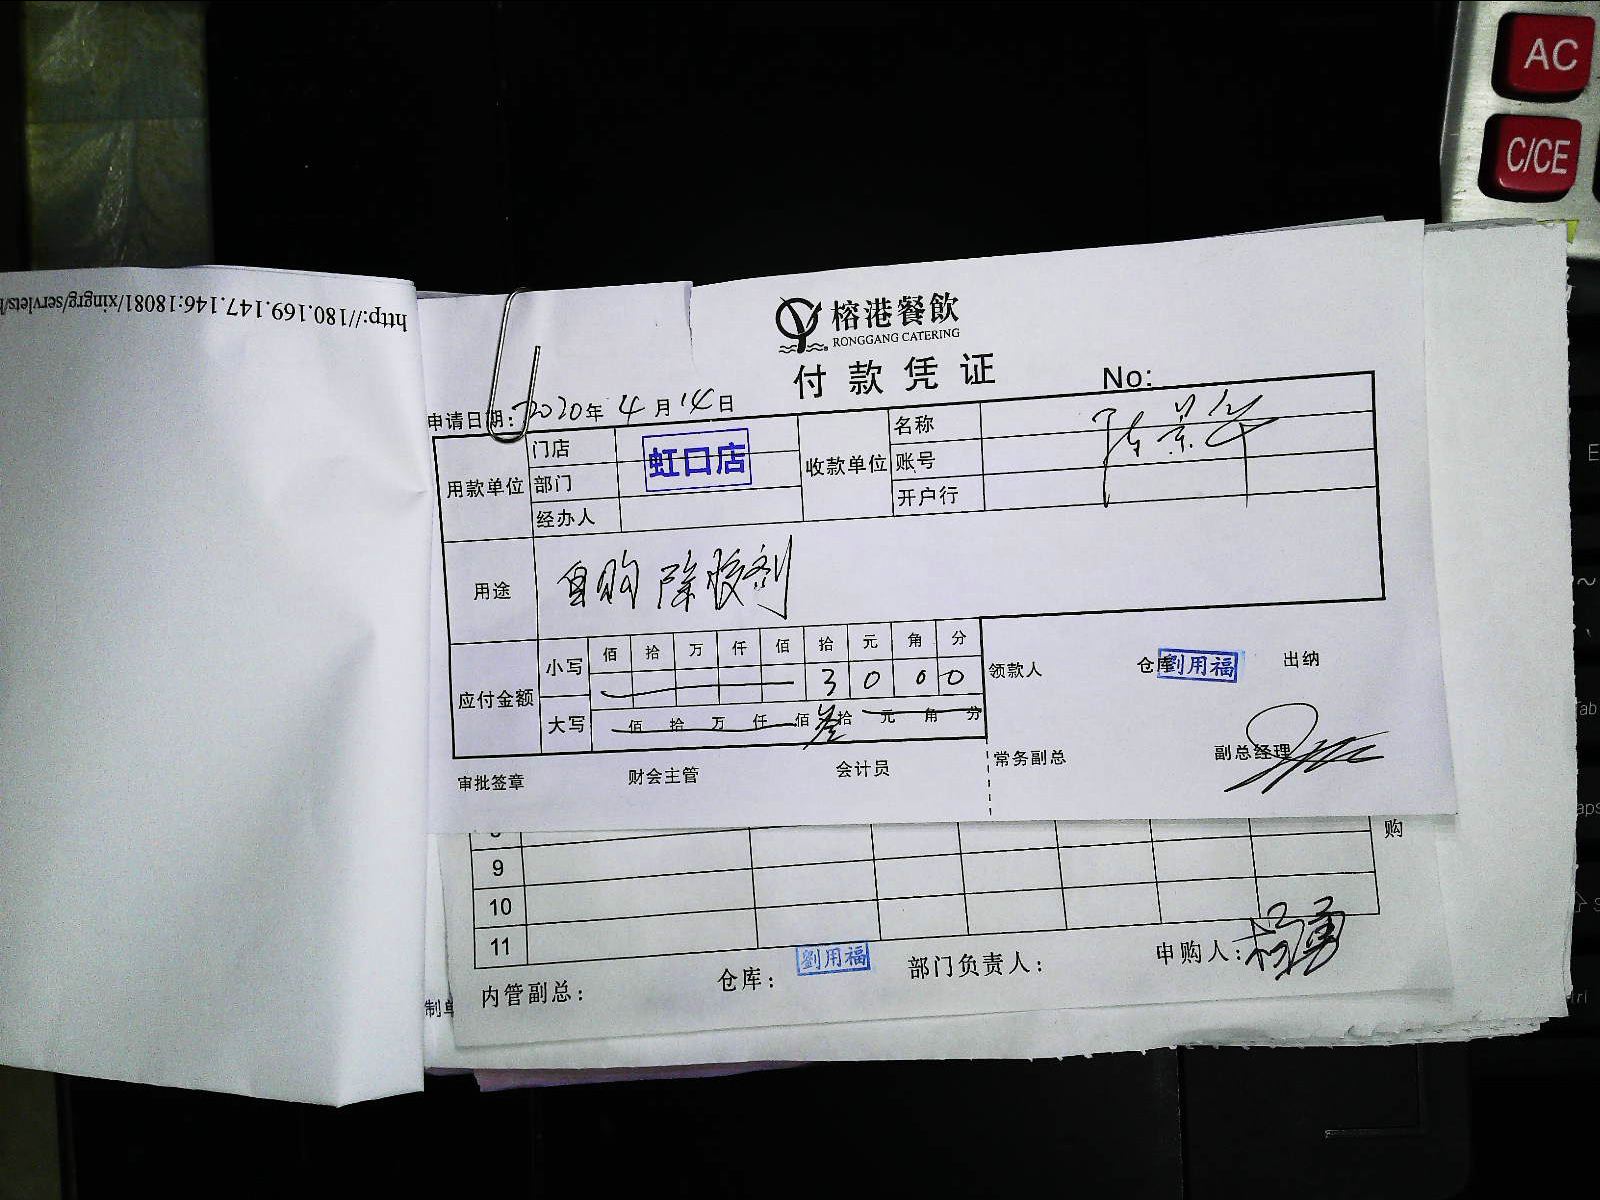 AC
C/CE
http://180.169.147.146:18081/xingrg/servlets/
榕港餐飲
RONGGANG CATERING
付款凭证
No:
申请日期: 2020年4月14日
用款单位 门店 虹口店 收款单位 名称
部门 账号
经办人 开户行
用途 自购除胶剂
应付金额 小写 佰 拾 万 仟 佰 拾 元 角 分
3 0 0 0
大写 佰 拾 万 仟 佰 叁拾 元 角 分
领款人 仓库 劉用福 出纳
审批签章 财会主管 会计员 常务副总 副总经理
购
9
10
11
内管副总: 仓库: 劉用福 部门负责人: 申购人: 杨勇
制单